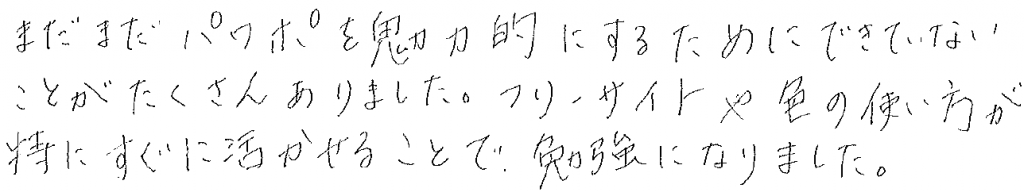 まだまだパワポを魅力的にするためにできていない
ことがたくさんありました。フリーサイトや色の使い方が
特にすぐに活かせることで、勉強になりました。